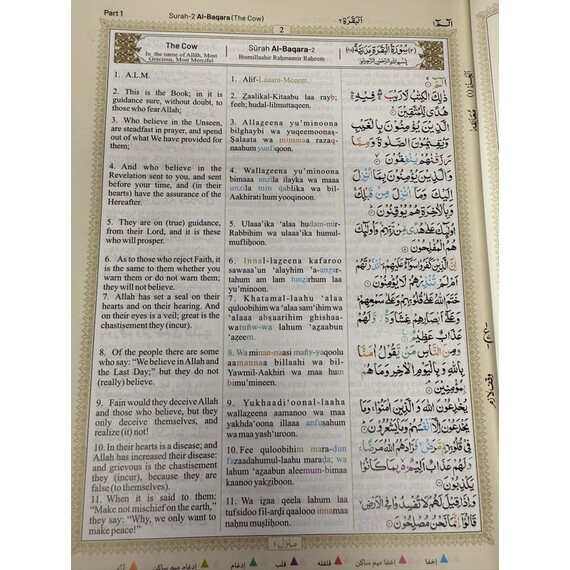 Part 1
Surah-2 Al-Baqara (The Cow)
اَلْبَقَرَة ٢
الٓمّٓ ١
2
The Cow
In the name of Allâh, Most
Gracious, Most Merciful
Sûrah Al-Baqara-2
Bismillaahir Raḥmaanir Raḥeem
1. A.L.M.
2. This is the Book; in it is
guidance sure, without doubt, to
those who fear Allah;
3. Who believe in the Unseen,
are steadfast in prayer, and spend
out of What We have provided for
them;
4. And who believe in the
Revelation sent to you, and sent
before your time, and (in their
hearts) have the assurance of the
Hereafter.
5. They are on (true) guidance,
from their Lord, and it is these
who will prosper.
6. As to those who reject Faith, it
is the same to them whether you
warn them or do not warn them;
they will not believe.
7. Allah has set a seal on their
hearts and on their hearing. And
on their eyes is a veil; great is the
chastisement they (incur).
8. Of the people there are some
who say: "We believe in Allah and
the Last Day;" but they do not
(really) believe.
9. Fain would they deceive Allah
and those who believe, but they
only deceive themselves, and
realize (it) not!
10. In their hearts is a disease; and
Allah has increased their disease:
and grievous is the chastisement
they (incur), because they are
false (to themselves).
11. When it is said to them:
"Make not mischief on the earth,"
they say: "Why, we only want to
make peace!"
1. Alif-Laaam-Meeem.
2. Zaalikal-Kitaabu laa rayb;
feeh; hudal-lilmuttaqeen.
3. Allazeena yu'minoona
bilghaybi wa yuqeemoonaṣ-
Ṣalaata wa mimmaa razaq-
naahum yunfiqoon.
4. Wallazeena yu'minoona
bimaaa unzila ilayka wa maaa
unzila min qablika wa bil-
Aakhirati hum yooqinoon.
5. Ulaaa'ika 'alaa hudam-mir-
Rabbihim wa ulaaa'ika humul-
mufliḥoon.
6. Innal-lazeena kafaroo
sawaaa'un 'alayhim 'a-anzar-
tahum am lam tunzirhum laa
yu'minoon.
7. Khatamal-laahu 'alaa
quloobihim wa 'alaa sam'ihim wa
'alaaa abṣaarihim ghishaa-
watuñw-wa lahum 'azaabun
'aẓeem.
8. Wa minan-naasi mañy-yaqoolu
aamannaa billaahi wa bil-
Yawmil-Aakhiri wa maa hum
bimu'mineen.
9. Yukhaadi'oonal-laaha
wallazeena aamanoo wa maa
yakhda'oona illaaa anfusahum
wa maa yash'uroon.
10. Fee quloobihim mara-ḍun
fazaadahumul-laahu maraḍa; wa
lahum 'azaabun aleemum-bimaa
kaanoo yakziboon.
11. Wa izaa qeela lahum laa
tufsidoo fil-arḍi qaaloo innamaa
naḥnu muṣliḥoon.
الٓمّٓ
ذٰلِكَ الْكِتٰبُ لَا رَيْبَ فِيْهِ
هُدًى لِّلْمُتَّقِيْنَ
الَّذِيْنَ يُؤْمِنُوْنَ بِالْغَيْبِ
وَيُقِيْمُوْنَ الصَّلٰوةَ وَمِمَّا
رَزَقْنٰهُمْ يُنْفِقُوْنَ
وَالَّذِيْنَ يُؤْمِنُوْنَ بِمَآ اُنْزِلَ
اِلَيْكَ وَمَآ اُنْزِلَ مِنْ قَبْلِكَ
وَبِالْاٰخِرَةِ هُمْ يُوْقِنُوْنَ
اُولٰٓئِكَ عَلٰى هُدًى مِّنْ رَّبِّهِمْ وَاُولٰٓئِكَ
هُمُ الْمُفْلِحُوْنَ
اِنَّ الَّذِيْنَ كَفَرُوْا سَوَآءٌ عَلَيْهِمْ ءَاَنْذَرْتَهُمْ
اَمْ لَمْ تُنْذِرْهُمْ لَا يُؤْمِنُوْنَ
خَتَمَ اللّٰهُ عَلٰى قُلُوْبِهِمْ وَعَلٰى سَمْعِهِمْ
وَعَلٰٓى اَبْصَارِهِمْ غِشَاوَةٌ وَّلَهُمْ
عَذَابٌ عَظِيْمٌ
وَمِنَ النَّاسِ مَنْ يَّقُوْلُ اٰمَنَّا
بِاللّٰهِ وَبِالْيَوْمِ الْاٰخِرِ وَمَا هُمْ
بِمُؤْمِنِيْنَ
يُخٰدِعُوْنَ اللّٰهَ وَالَّذِيْنَ اٰمَنُوْا وَمَا
يَخْدَعُوْنَ اِلَّآ اَنْفُسَهُمْ وَمَا يَشْعُرُوْنَ
فِيْ قُلُوْبِهِمْ مَّرَضٌ فَزَادَهُمُ اللّٰهُ مَرَضًا
وَلَهُمْ عَذَابٌ اَلِيْمٌ بِمَا كَانُوْا
يَكْذِبُوْنَ
وَاِذَا قِيْلَ لَهُمْ لَا تُفْسِدُوْا فِى الْاَرْضِ
قَالُوْٓا اِنَّمَا نَحْنُ مُصْلِحُوْنَ
وقف لازم
منزل ١
اخفا
اخفا میم ساكن
قلقله
قلب
ادغام
ادغام میم ساكن